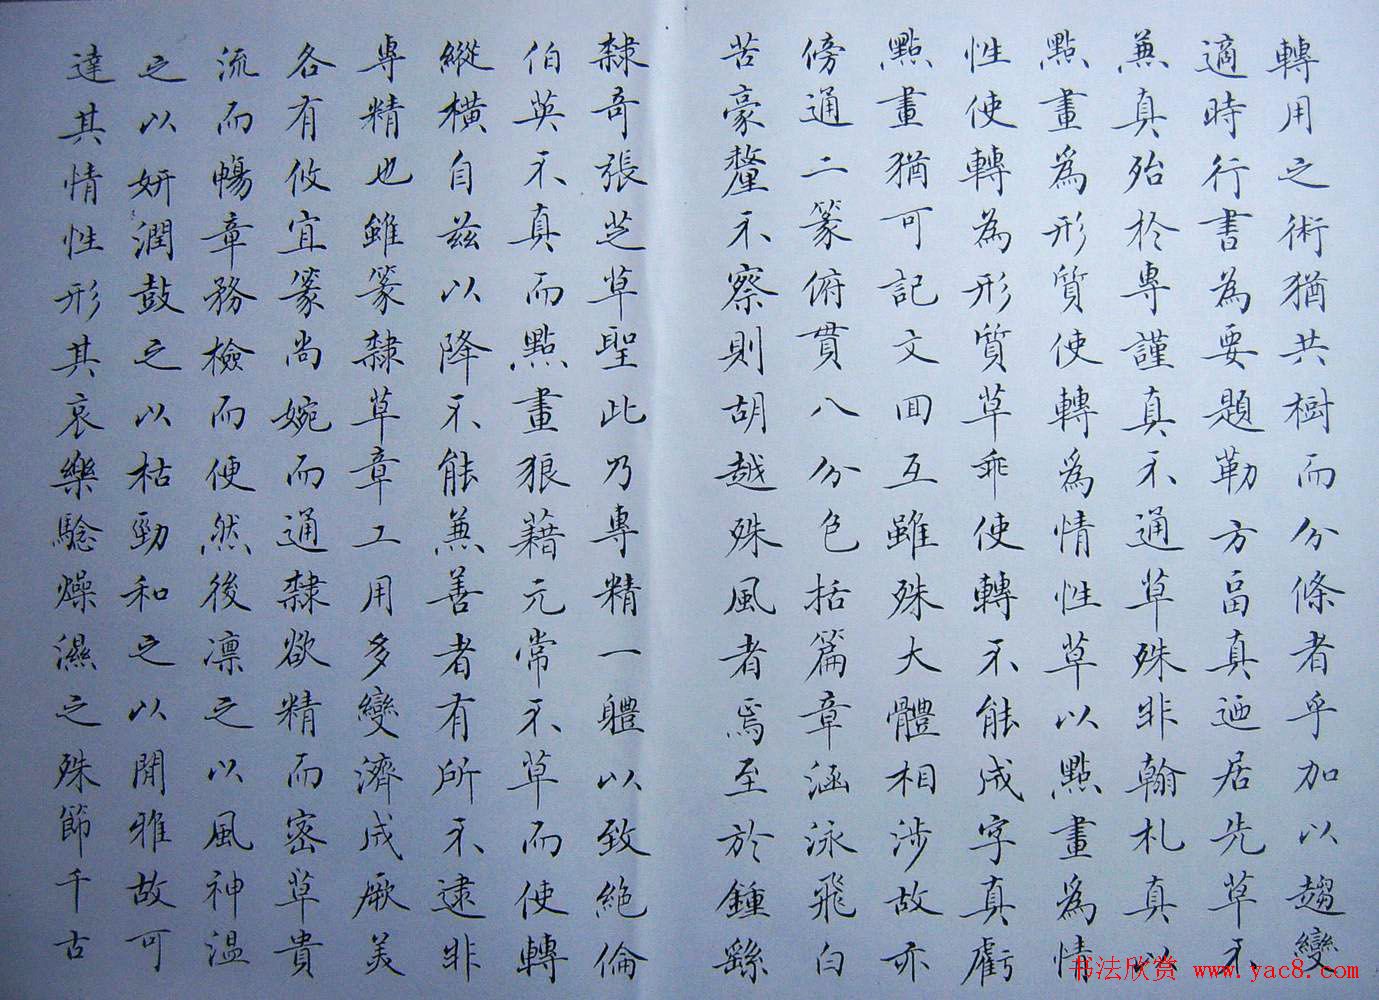 轉用之術猶共樹而分條者乎加以趨變
適時行書為要題勒方畐真迺居先草不
兼真殆於專謹真不通草殊非翰札真以
點畫為形質使轉為情性草以點畫為情
性使轉為形質草乖使轉不能成字真虧
點畫猶可記文回互雖殊大體相涉故亦
傍通二篆俯貫八分色括篇章涵泳飛白
苦豪釐不察則胡越殊風者焉至於鍾繇
隸奇張芝草聖此乃專精一體以致絕倫
伯英不真而點畫狼藉元常不草而使轉
縱橫自茲以降不能兼善者有所不逮非
專精也雖篆隸草章工用多變濟成厥美
各有攸宜篆尚婉而通隸欲精而密草貴
流而暢章務檢而便然後凛之以風神温
之以妍潤鼓之以枯勁和之以閒雅故可
達其情性形其哀樂驗燥濕之殊節千古
书法欣赏 www.yac8.com